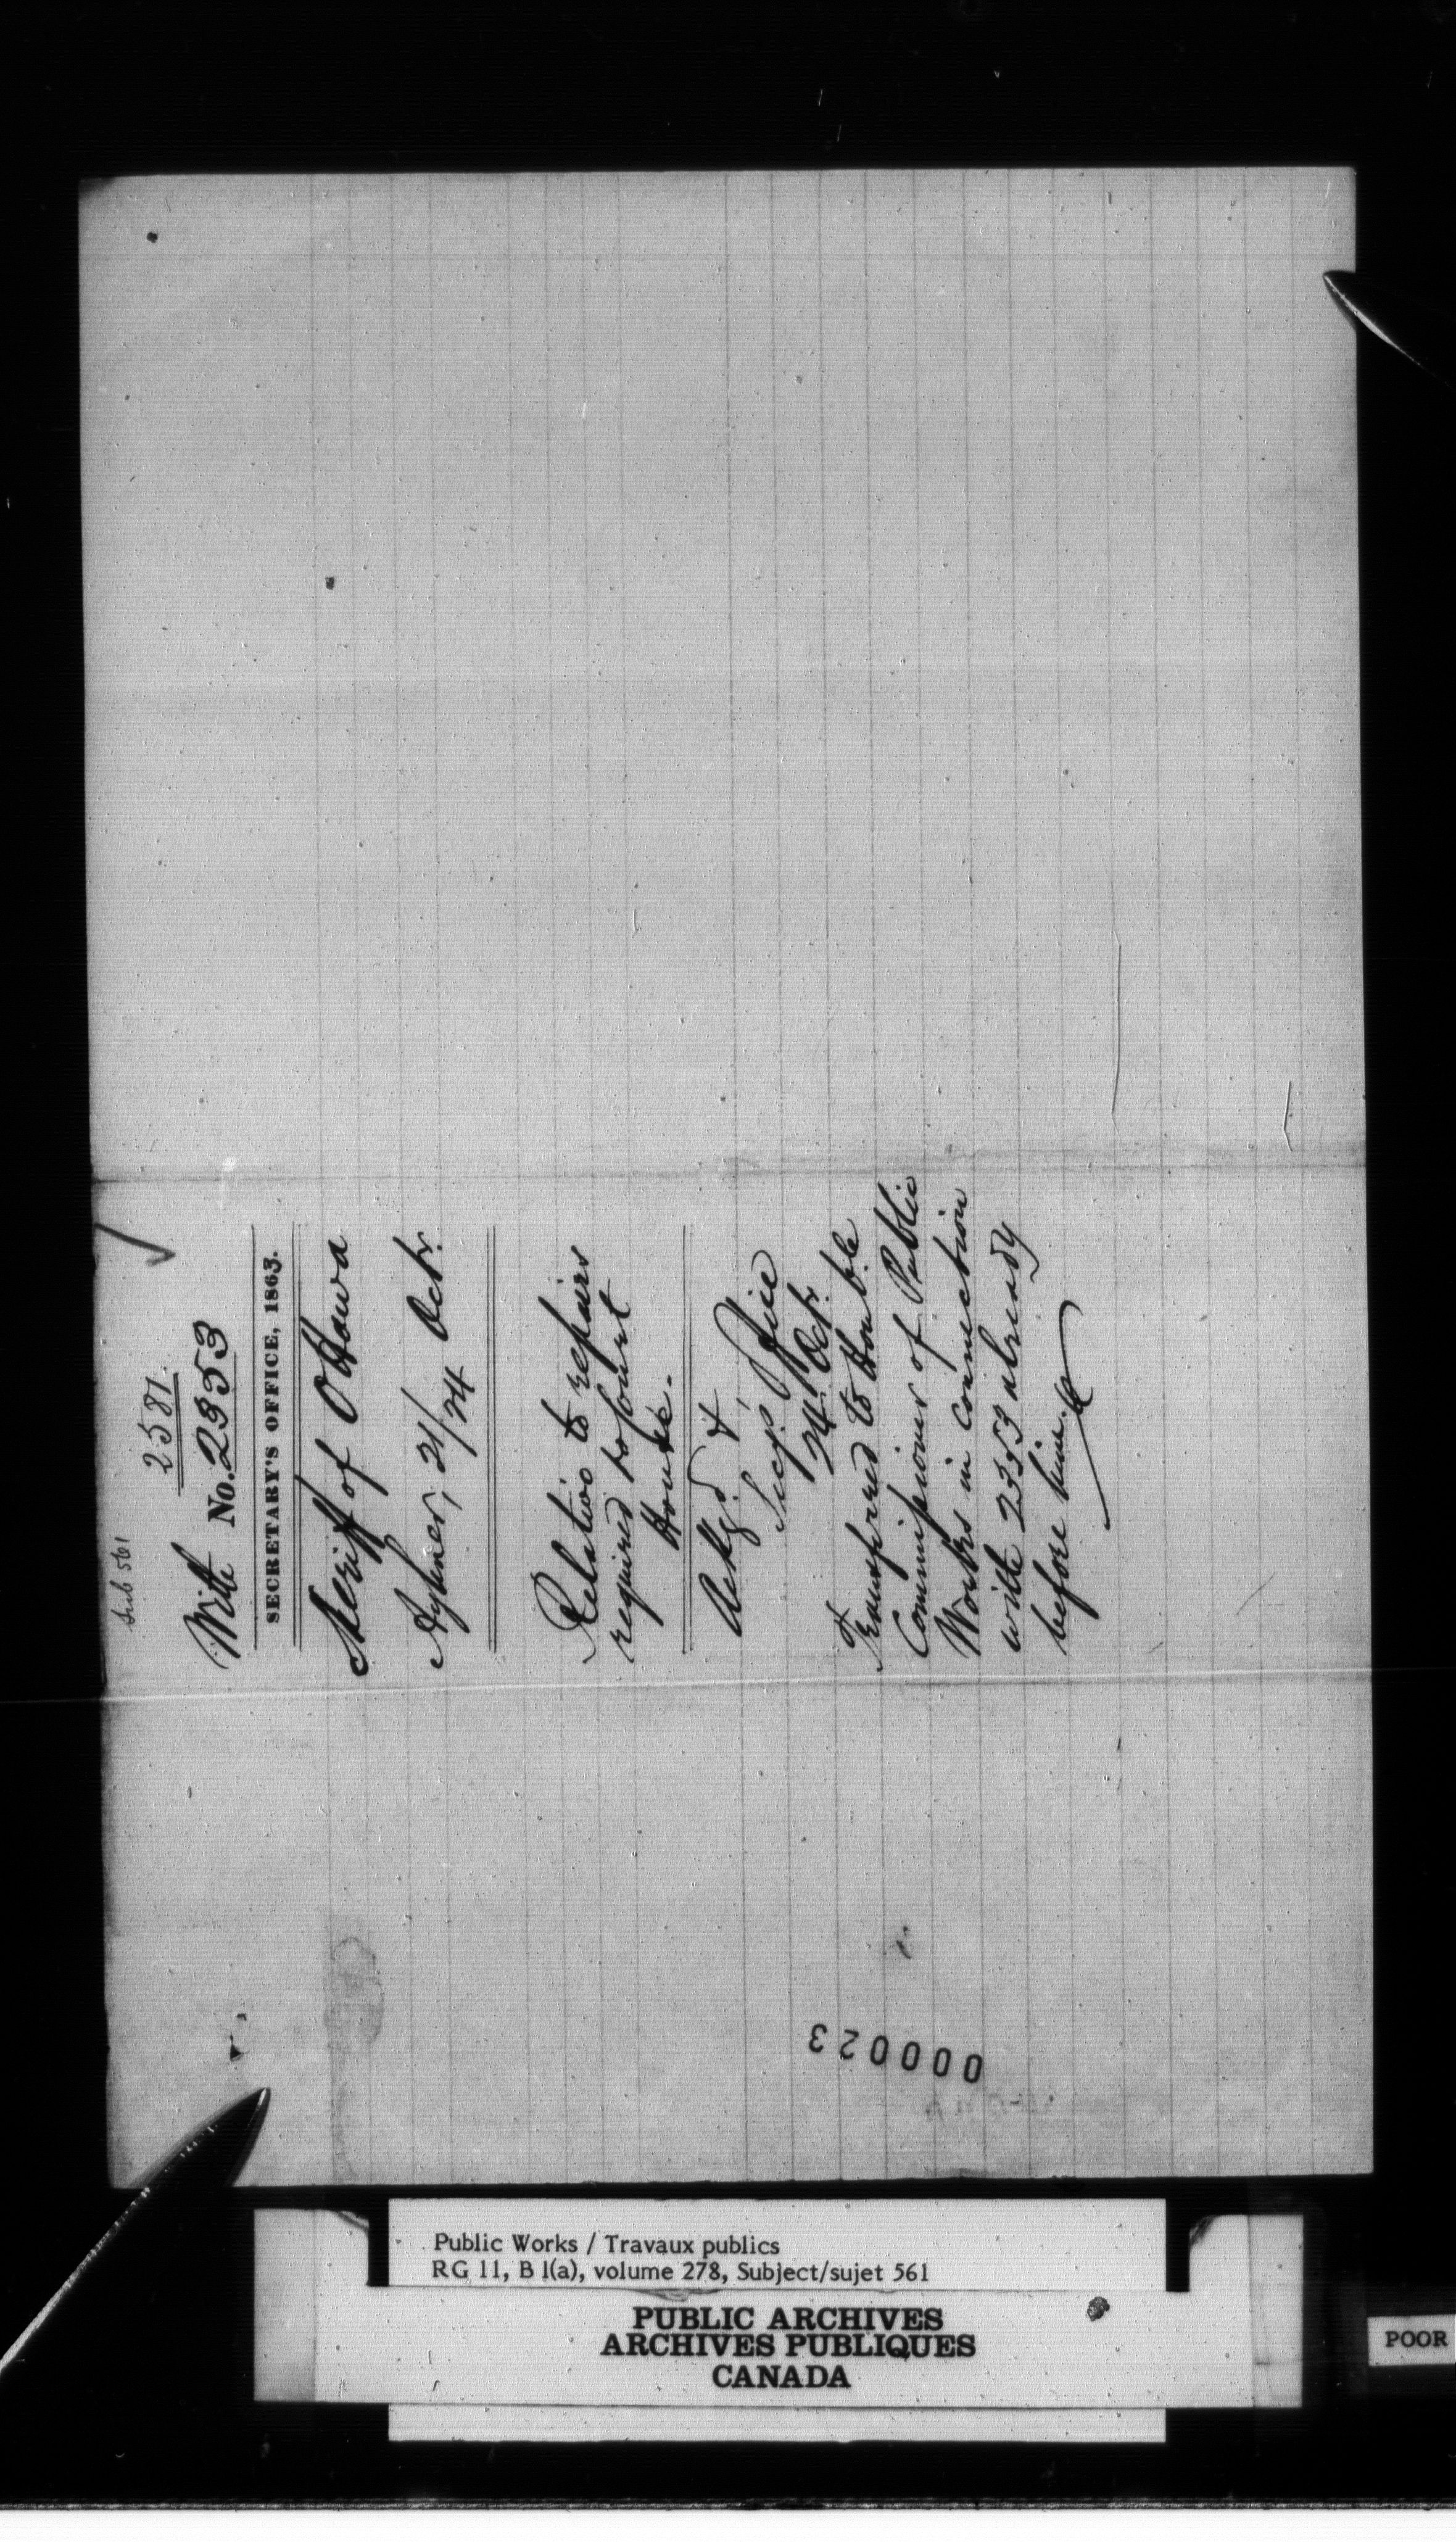 Sub 561
2581.
With No. 2353
SECRETARY'S OFFICE, 1863.
Sheriff of Ottawa
Aylmer, 21/24 Octr.
Relative to repairs
required to Court
House.
Ackgd. &
Secy's Office
24 Octr.
Transferred to Honble
Commissioner of Public
Works in connection
with 2353 already
before him.
000023
Public Works / Travaux publics
RG 11, B 1(a), volume 278, Subject/sujet 561
PUBLIC ARCHIVES
ARCHIVES PUBLIQUES
CANADA
POOR